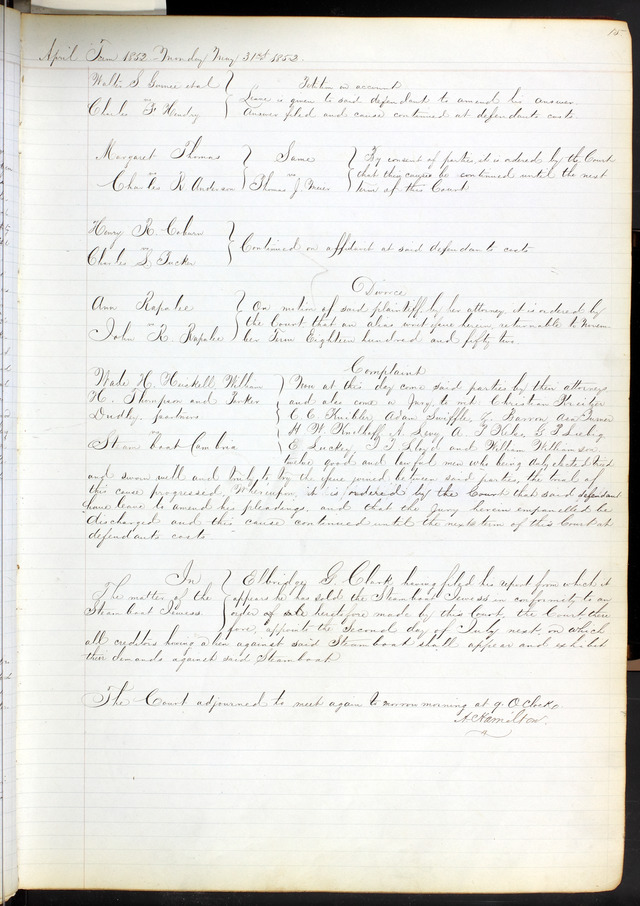 15
April Term 1852 Monday May 31st 1852.
Walter S Gurnee et al } Petition on account
vs } Leave is given to said defendant to amend his answer.
Charles F Hendry } Answer filed and cause continued at defendants costs.
Margaret Thomas } Same } By consent of parties, it is ordered by the Court
vs } vs } that these causes be continued until the next
Charles R Anderson } Thomas J } term of this Court
Henry R. Coburn
vs } Continued on affidavit at said defendants costs
Charles S. Tucker
Divorce
Ann Rapalee } On motion of said plaintiff by her attorney it is ordered by
vs } the Court that an alias writ issue herein returnable to Novem-
John R. Rapalee } ber Term Eighteen hundred and fifty two.
Complaint
Wade H. Haskell William } Now at this day come said parties by their attorneys
H. Thompson and Parker } and also come a Jury to wit Christian
Dudley partners } C C Adam Swiffle, Z. Farron Asa Turner
vs } H W A Levy A. T. G P
Steam boat Cambria } E Luckey, T T Lloyd and William Williamson
twelve good and lawful men who being duly elected tried
and sworn well and truly to try the issue joined between said parties, the trial of
this cause progressed, Whereupon it is ordered by the Court that said defendant
have leave to amend his pleadings, and that the Jury herein empannelled be
discharged and this cause continued until the next term of this Court at
defendants costs
In } Elbridge G. Clark, having filed his report from which it
The matter of the } appears he has sold the Steamboat Geness in conformity to an
Steam boat Geness. } order of sale heretofore made by this Court, the Court there
fore, appoints the Second day of July next, on which
all creditors having a lien against said Steam boat shall appear and exhibit
their demands against said Steamboat
The Court adjourned to meet again to morrow morning at 9. O Clock.
A Hamilton.